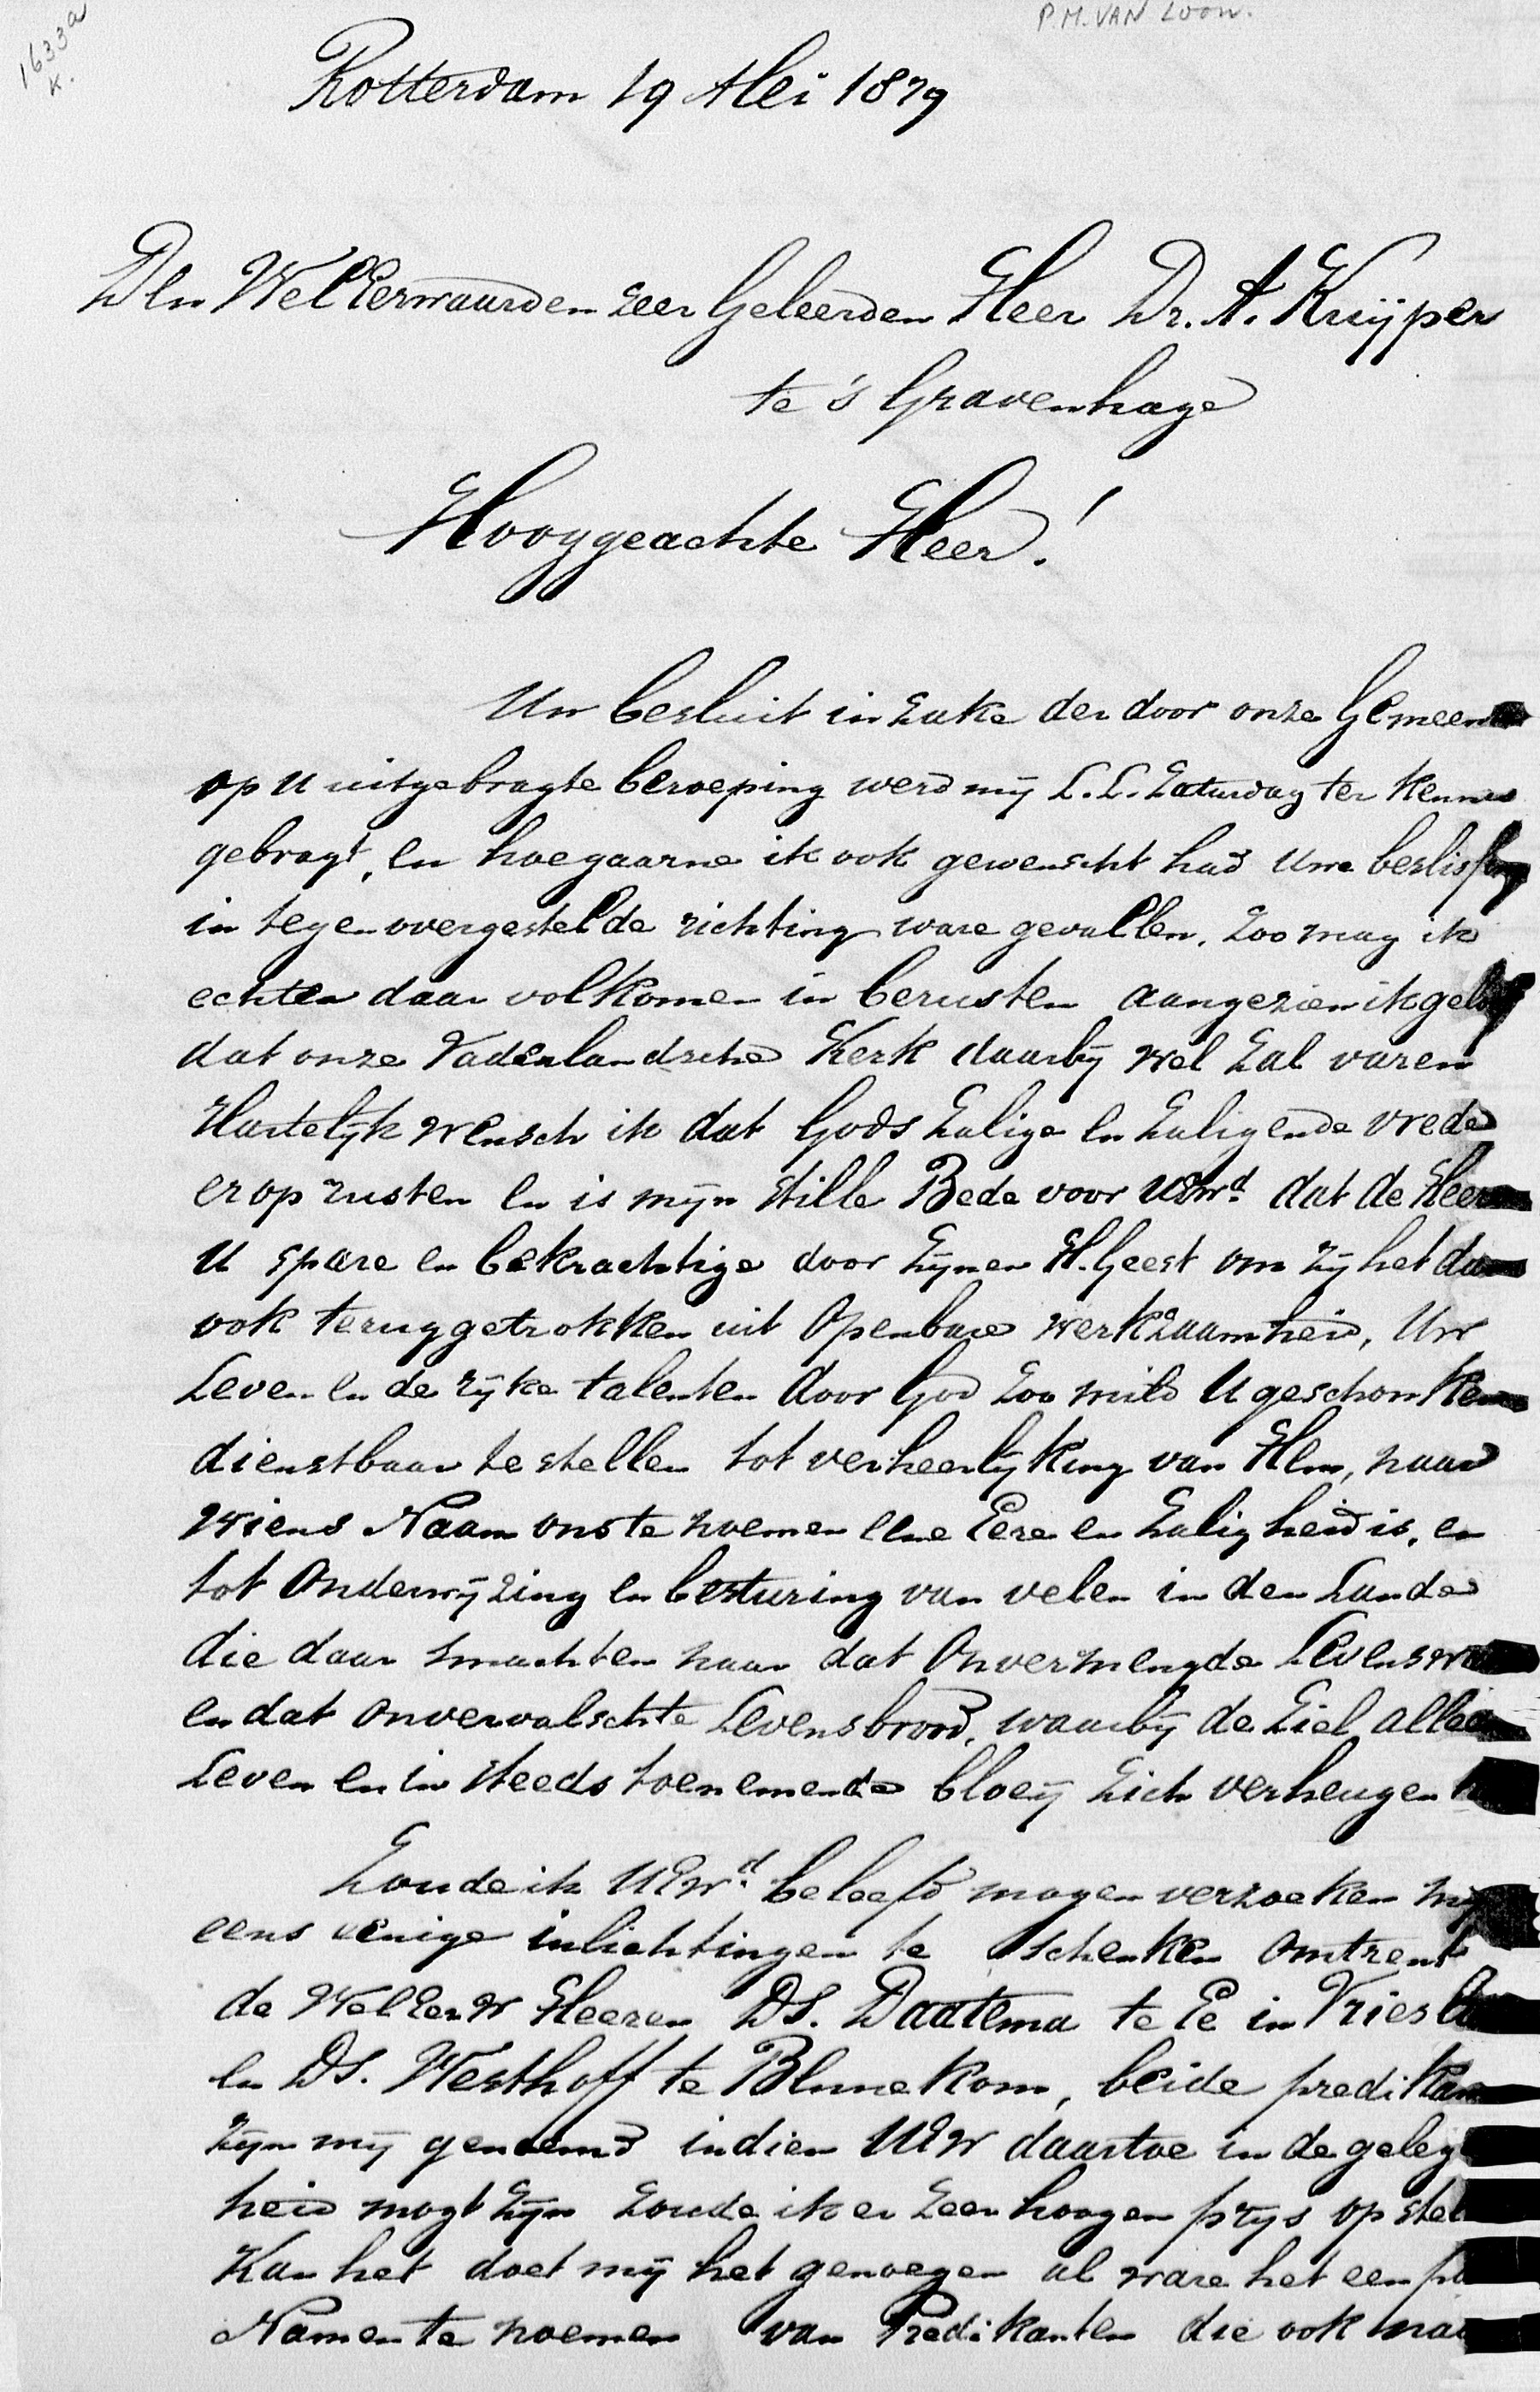 1633a
K.
P.M. VAN LOON.
Rotterdam 19 Mei 1879
Den WelEerwaarden zeer Geleerden Heer Dr. A. Kuijper
te 's Gravenhage
Hooggeachte Heer!
Uw besluit in zake der door onze Gemeen
op U uitgebragte beroeping werd mij L.L. Zaturdag ter kennis
gebragt, en hoe gaarne ik ook gewenscht had Uwe beslissing
in tegenovergestelde richting ware gevallen, zoo mag ik
echter daar volkomen in berusten aangezien ik geloof
dat onze Vaderlandsche Kerk daarbij wel zal varen
Hartelijk wensch ik dat Gods Zalige en Zaligende vrede
er op rusten en is mijn stille Bede voor UEwd dat de Heer
U spare en bekrachtige door Zijnen H. Geest om zij het dan
ook teruggetrokken uit Openbare werkzaamheid, Uw
Leven en de rijke talenten door God zoo mild U geschonken
dienstbaar te stellen tot verheerlijking van Hem, naar
wiens Naam ons te noemen eene Eere en Zaligheid is, en
tot Onderwijzing en besturing van velen in den Lande
die daar smachten naar dat Onvermengde Levensw
en dat onvervalschte Levensbrood, waarbij de Ziel allee
Leven en in steeds toenemende bloeij zich verheugen
Zoude ik UEwd beleefd mogen verzoeken mij
eens eenige inlichtingen te schenken omtrent
de WelEerw Heeren DS. Daatema te Ee in Vriesla
en DS. Westhoff te Bennekom, beide predikan
zijn mij genoemd indien UEW daartoe in de geleg
heid mogt zijn zoude ik er zeer hoogen prijs op stel
Kan het doet mij het genoegen al ware het een
Namen te noemen van Predikanten die ook naa